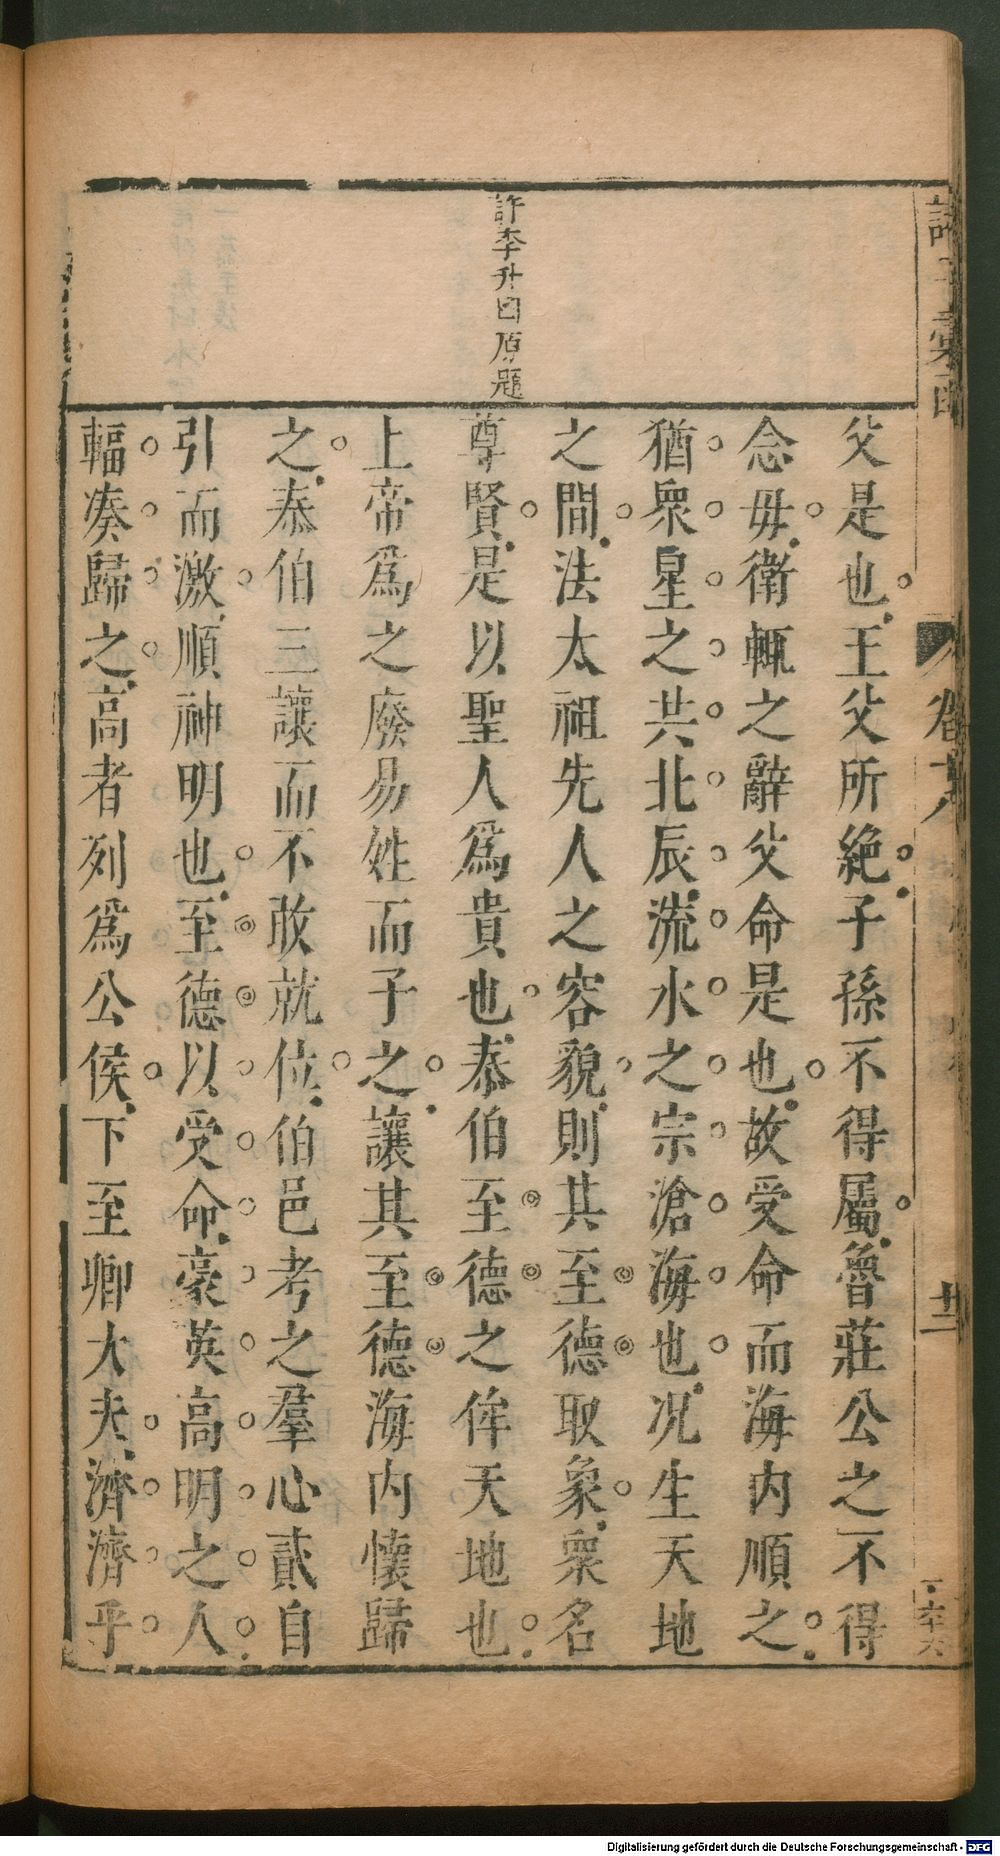 許李升因原題
父是也王父所絕子孫不得屬魯莊公之不得
念毋衛輒之辭父命是也故受命而海内順之
猶衆星之共北辰流水之宗滄海也况生天地
之間法太祖先人之容貌則其至德取象衆名
尊賢是以聖人爲貴也泰伯至德之侔天地也
上帝爲之廢易姓而子之讓其至德海内懷歸
之泰伯三讓而不敢就位伯邑考之羣心貳自
引而激順神明也至德以受命豪英高明之人
輻湊歸之高者列爲公侯下至卿大夫濟濟乎
卷十八
Digitalisierung gefördert durch die Deutsche Forschungsgemeinschaft - DFG